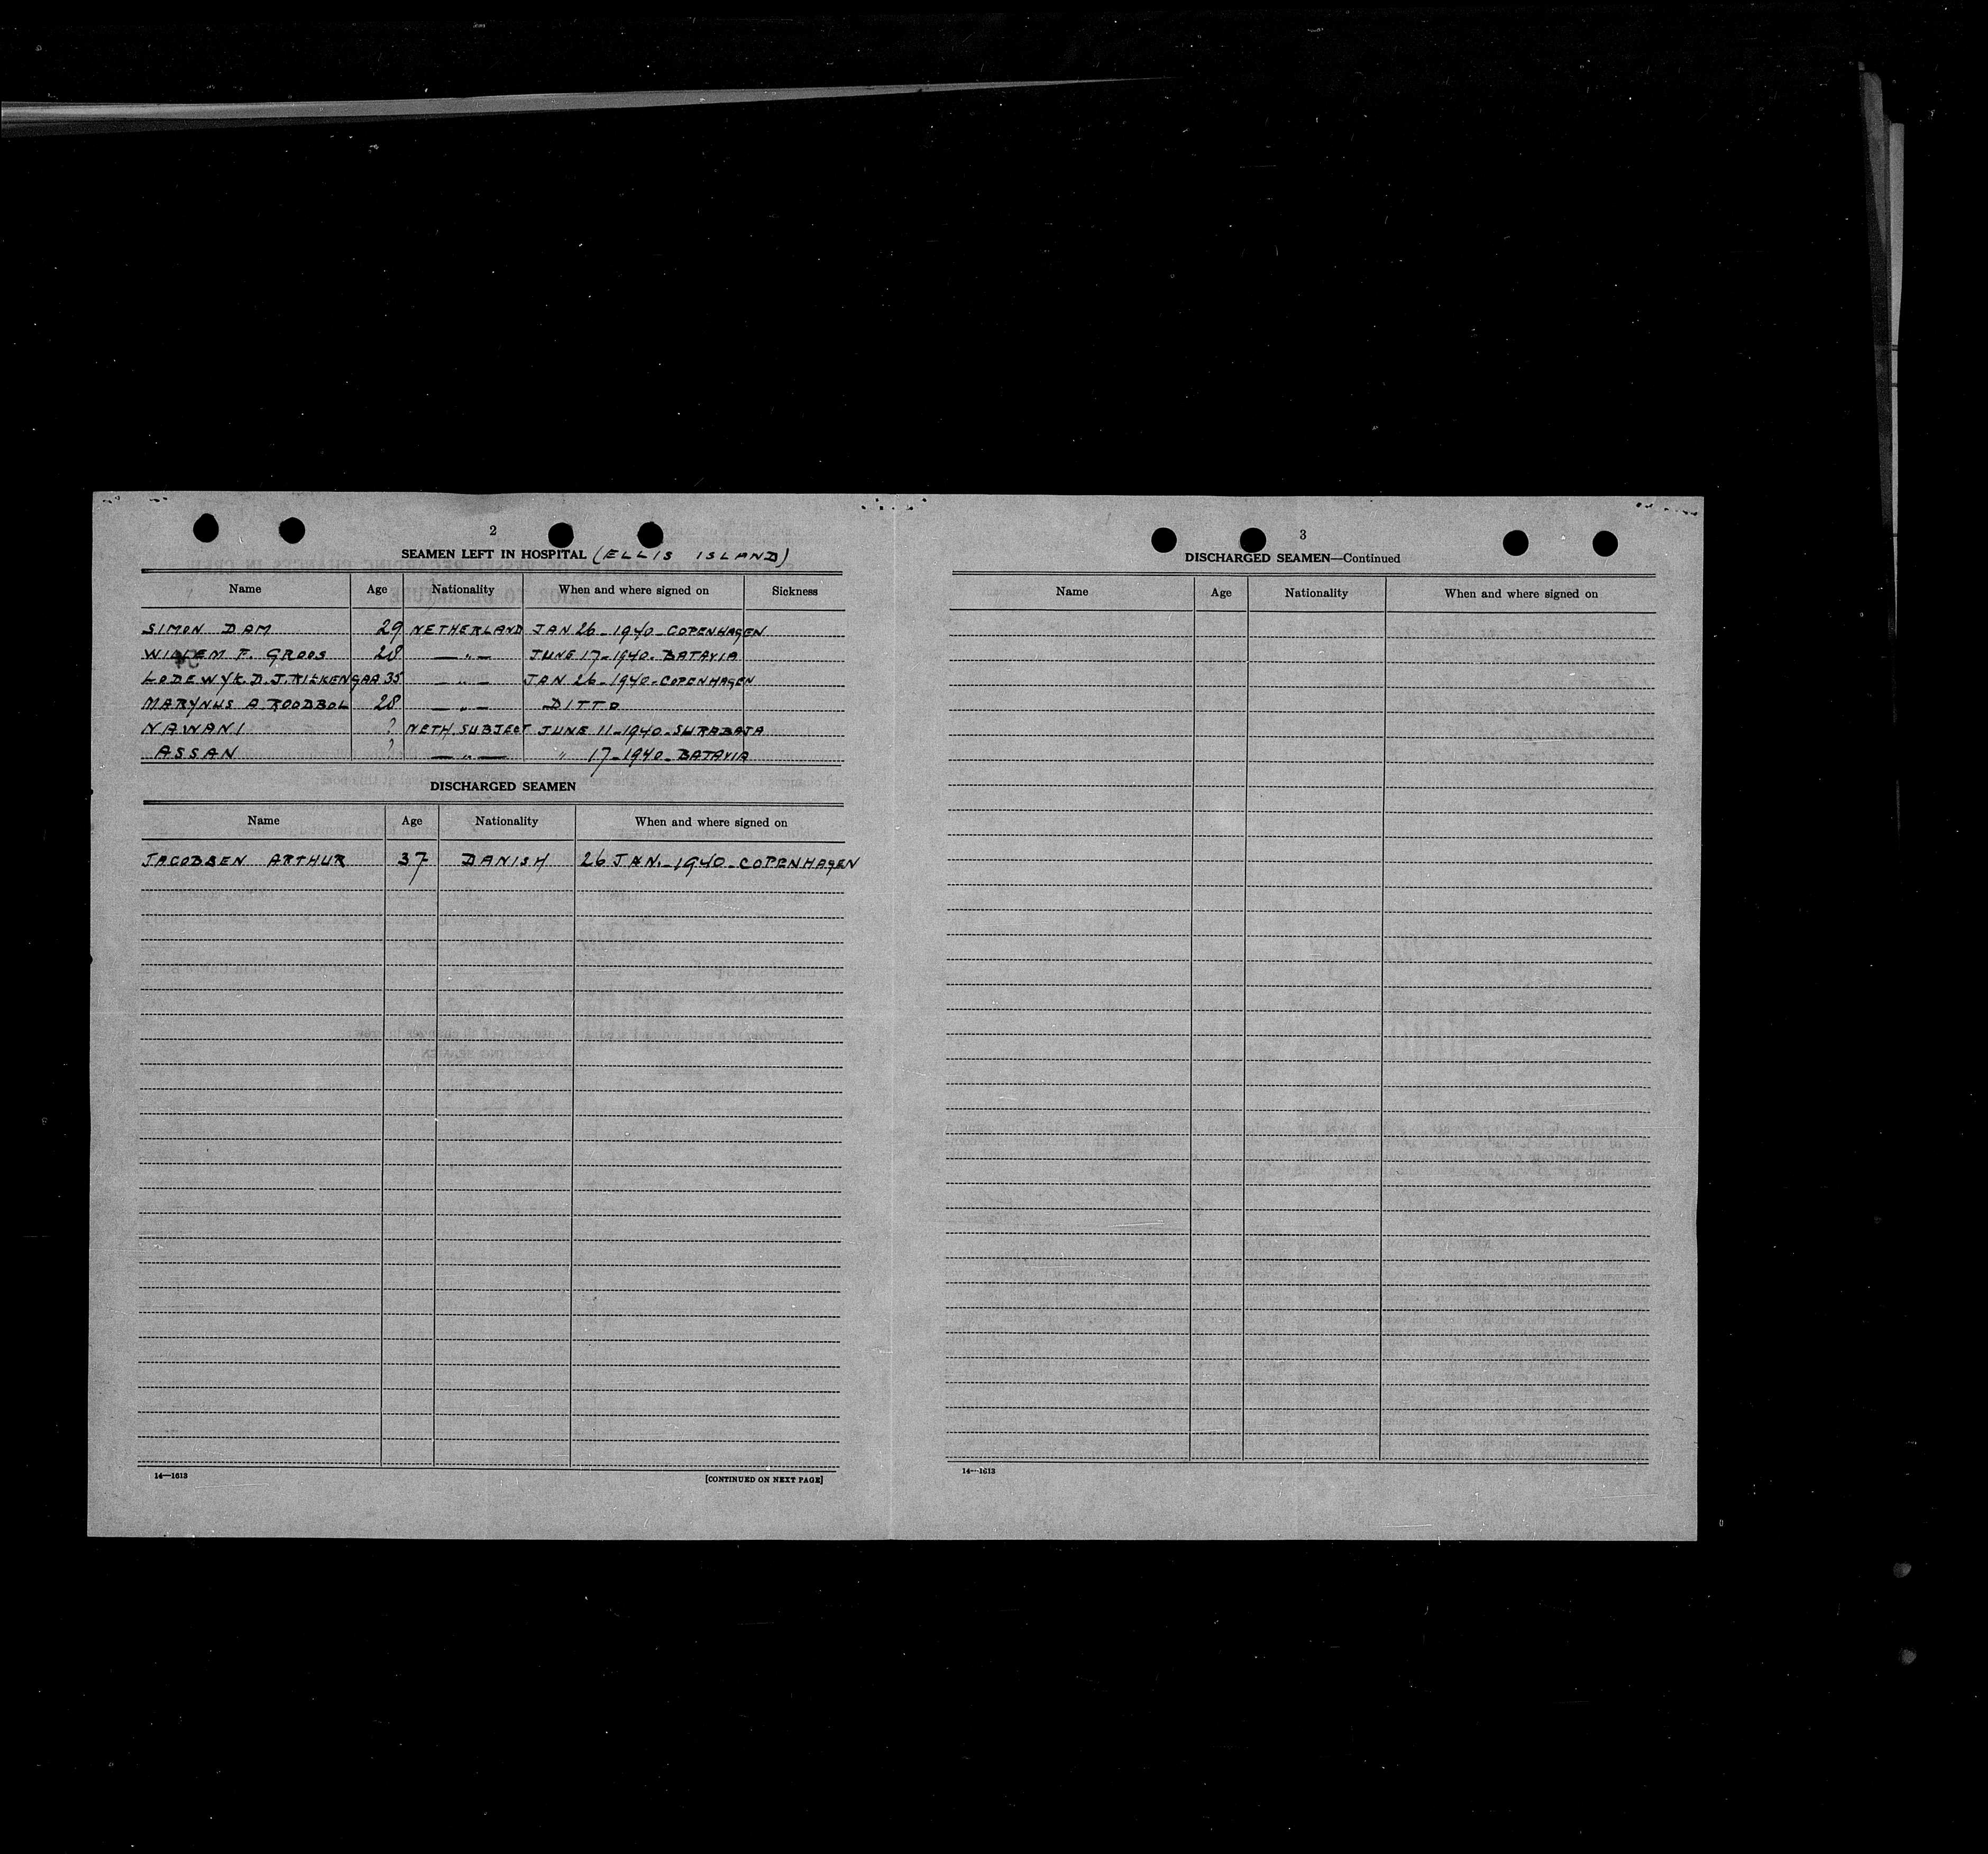 2
SEAMEN LEFT IN HOSPITAL (ELLIS ISLAND)
Name Age Nationality When and where signed on Sickness
SIMON DAM 29 NETHERLAND JAN 26-1940-COPENHAGEN
WILLEM F. GROOS 28 —„— JUNE 17-1940-BATAVIA
LODEWYK. D. J. 35 —„— JAN 26-1940-COPENHAGEN
MARYNUS A ROODBOL 28 —„— DITTO
NAWANI ? NETH SUBJECT JUNE 11-1940-SURABAJA
ASSAN ? —„— „ 17-1940-BATAVIA
DISCHARGED SEAMEN
Name Age Nationality When and where signed on
JACOBSEN ARTHUR 37 DANISH 26 JAN.-1940-COPENHAGEN
14—1613 [CONTINUED ON NEXT PAGE]
3
DISCHARGED SEAMEN—Continued
Name Age Nationality When and where signed on
14—1613